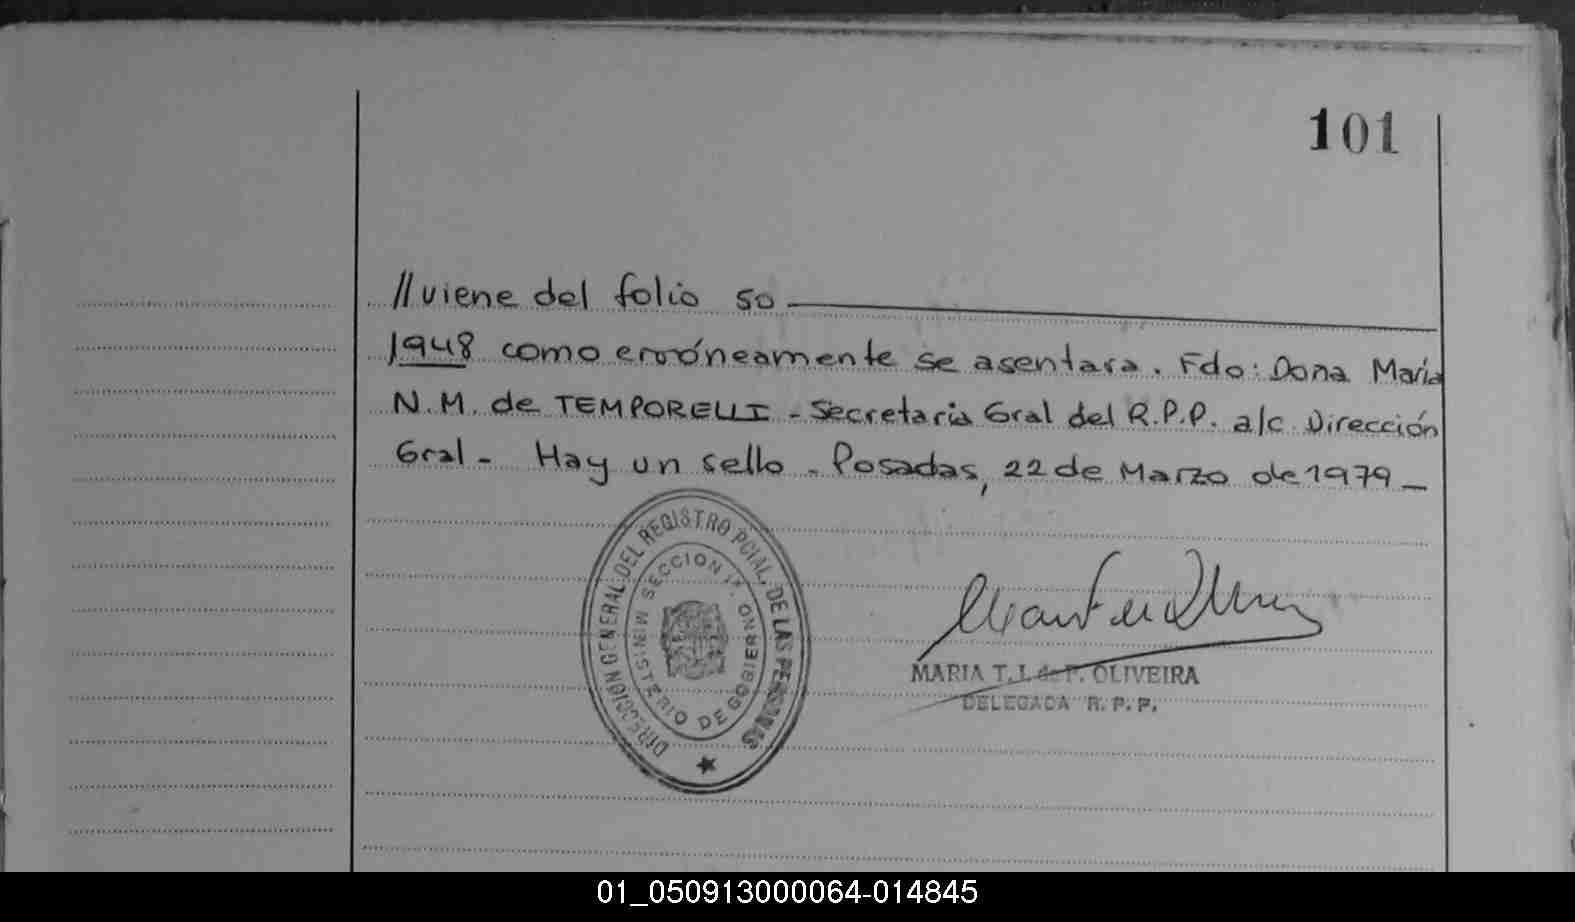 101
//viene del folio 50
1948 como erróneamente se asentara. Fdo: Dona Maria
N.M. de TEMPORELLI - Secretaria Gral del R.P.P. a/c Dirección
Gral - Hay un sello - Posadas, 22 de Marzo de 1979 -
DIRECCION GENERAL DEL REGISTRO PCIAL. DE LAS PERSONAS
SECCION 1ª.
MINISTERIO DE GOBIERNO
MARIA T. I. de P. OLIVEIRA
DELEGADA R. P. P.
01_050913000064-014845